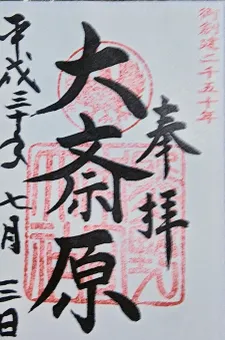 御創建二千五十年
奉拝
大斎原
平成三十年 七月 三日